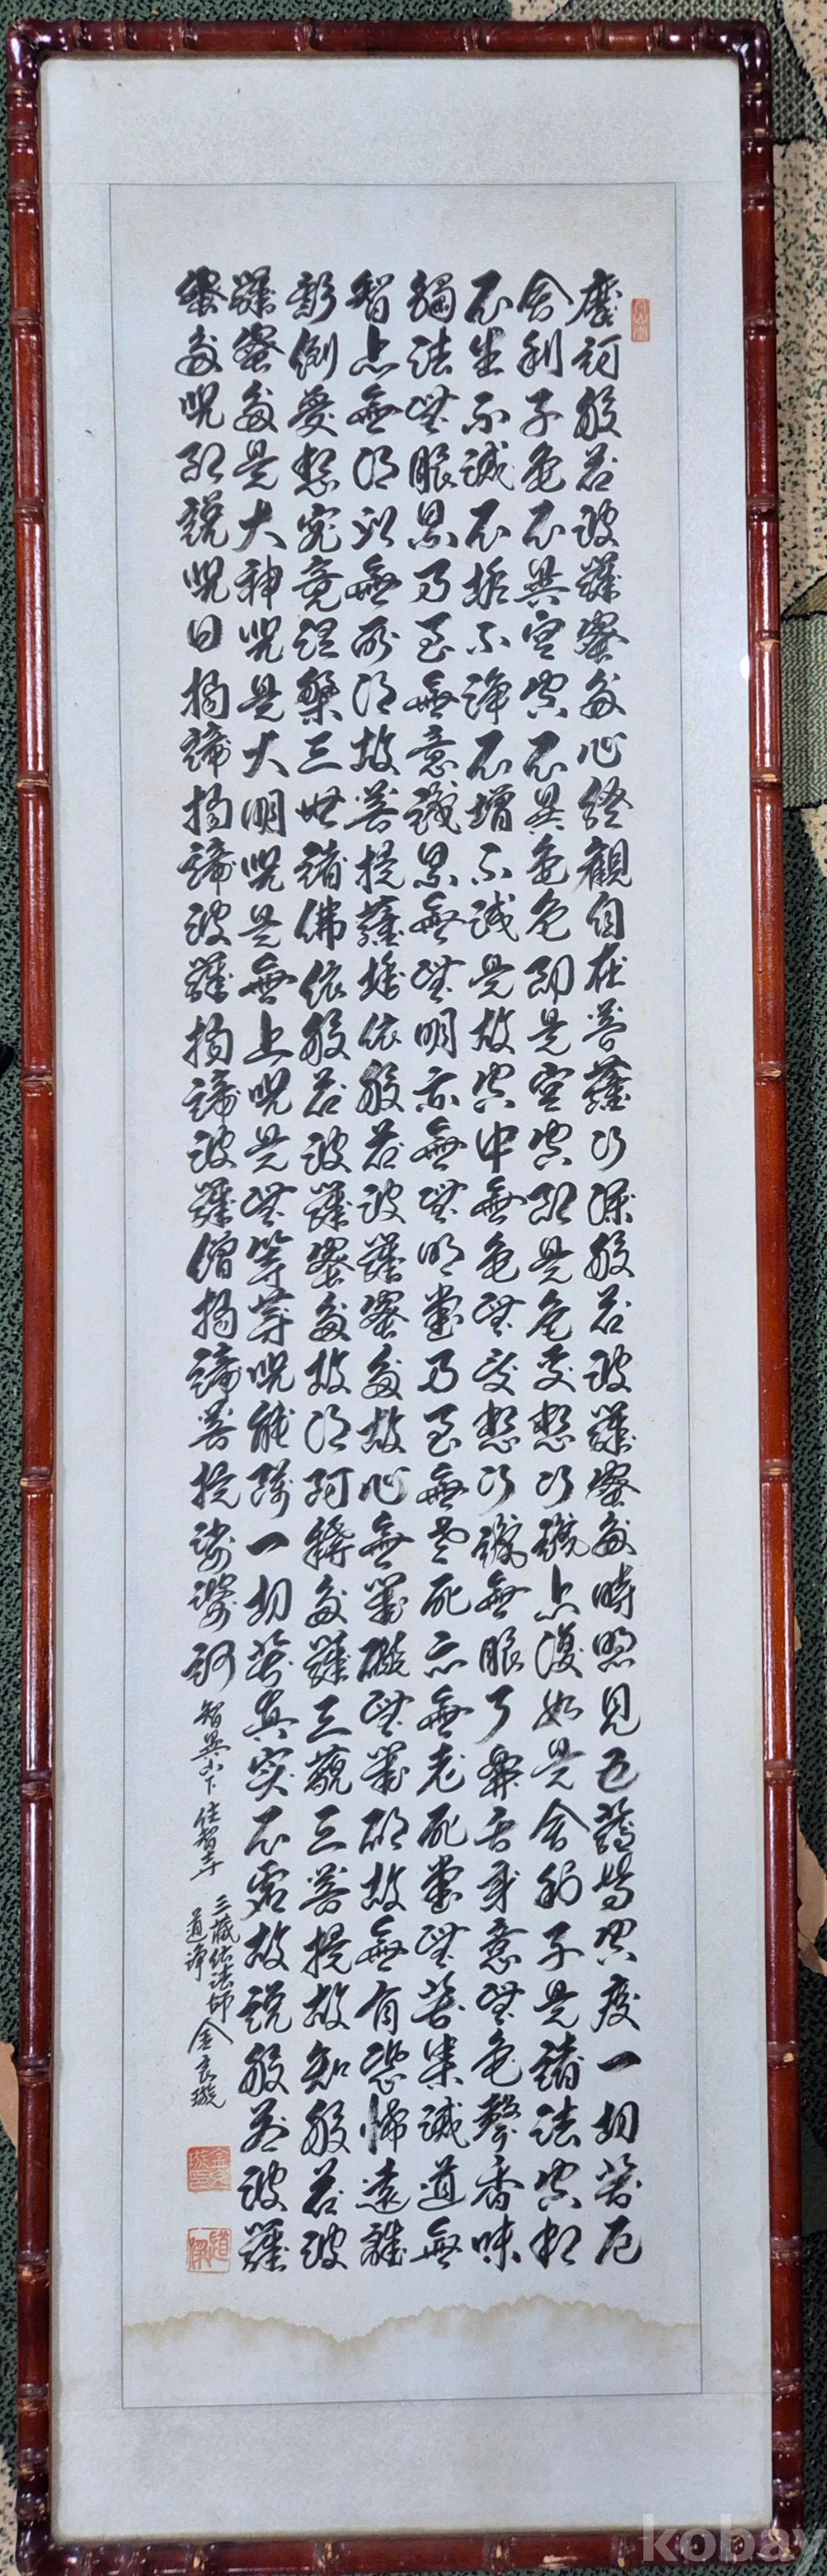 摩訶般若波羅蜜多心經觀自在菩薩行深般若波羅蜜多時照見五蘊皆空度一切苦厄
舍利子色不異空空不異色色即是空空即是色受想行識亦復如是舍利子是諸法空相
不生不滅不垢不淨不增不減是故空中無色無受想行識無眼耳鼻舌身意無色聲香味
觸法無眼界乃至無意識界無無明亦無無明盡乃至無老死亦無老死盡無苦集滅道無
智亦無得以無所得故菩提薩埵依般若波羅蜜多故心無罣礙無罣礙故無有恐怖遠離
顛倒夢想究竟涅槃三世諸佛依般若波羅蜜多故得阿耨多羅三藐三菩提故知般若波
羅蜜多是大神呪是大明呪是無上呪是無等等呪能除一切苦真實不虛故說般若波羅
蜜多呪即說呪曰揭諦揭諦波羅揭諦波羅僧揭諦菩提娑婆訶
智異山下住智寺
三藏法師
道淨
金良璇
kobay